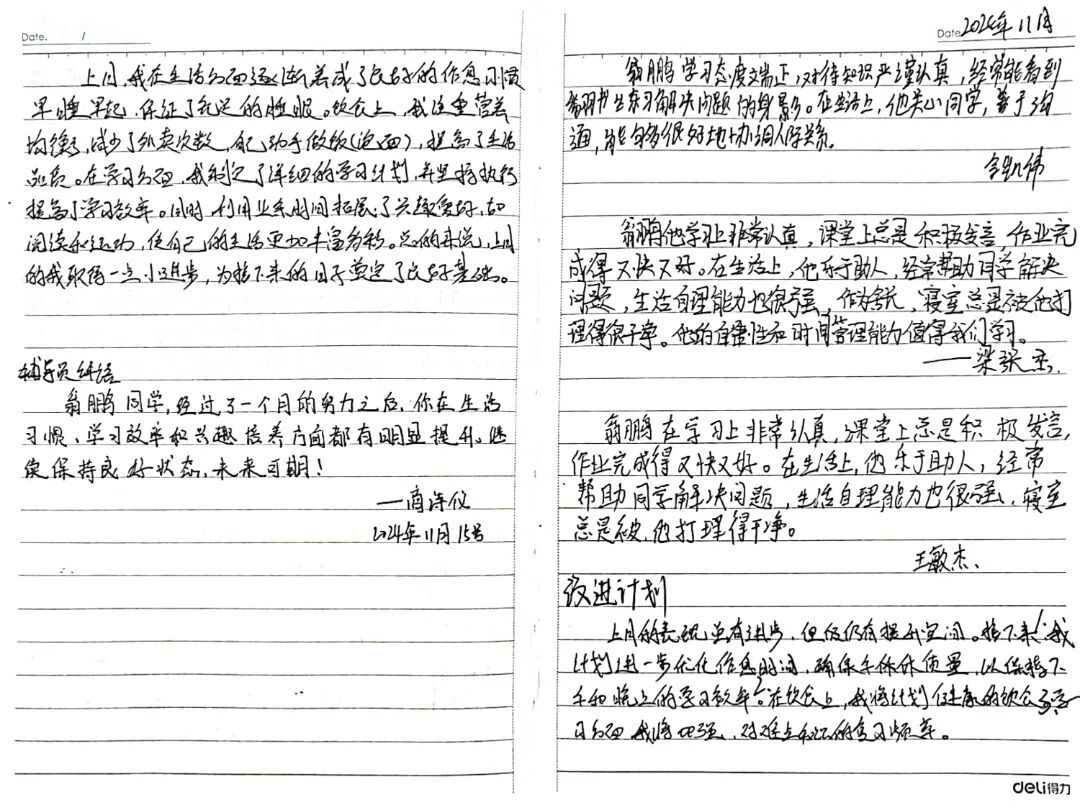 Date. 1
上月,我在生活方面逐渐养成了良好的作息习惯
早睡早起,保证了充足的睡眠。饮食上,我注重营养
均衡,减少了外卖次数,自己动手做饭(泡面),提高了生活
品质。在学习方面,我制定了详细的学习计划,并坚持执行
提高了学习效率。同时,利用业余时间拓展了兴趣爱好,如
阅读和运动,使自己的生活更加丰富多彩。总的来说,上月
的我取得一点小进步,为接下来的日子奠定了良好基础。
辅导员评语
翁鹏同学,经过了一个月的努力之后,你在生活
习惯、学习效率和兴趣培养方面都有明显提升。继
续保持良好状态,未来可期!
——商诗仪
2024年11月15号
Date 2024年11月
翁鹏学习态度端正,对待知识严谨认真,经常能看到
翁鹏书生在习解决问题的身影。在生活上,他关心同学,善于沟
通,能够很好地协调人际关系。
翁鹏他学习上非常认真,课堂上总是积极发言,作业完
成得又快又好。在生活上,他乐于助人,经常帮助同学解决
问题,生活自理能力也很强,作为舍长,寝室总是被他打
理得很干净。他的自律性和时间管理能力值得我们学习。
——梁
翁鹏在学习上非常认真,课堂上总是积极发言,
作业完成得又快又好。在生活上,他乐于助人,经常
帮助同学解决问题,生活自理能力也很强,寝室
总是被他打理得干净。
王敏杰.
改进计划
上月的表现虽有进步,但仍有提升空间。接下来,我
计划进一步优化作息时间,确保午休质量,以保持下
午和晚上的学习效率。在饮食上,我将计划健康的饮食。学
习方面,我将加强,对难点和的复习频率。
deli得力